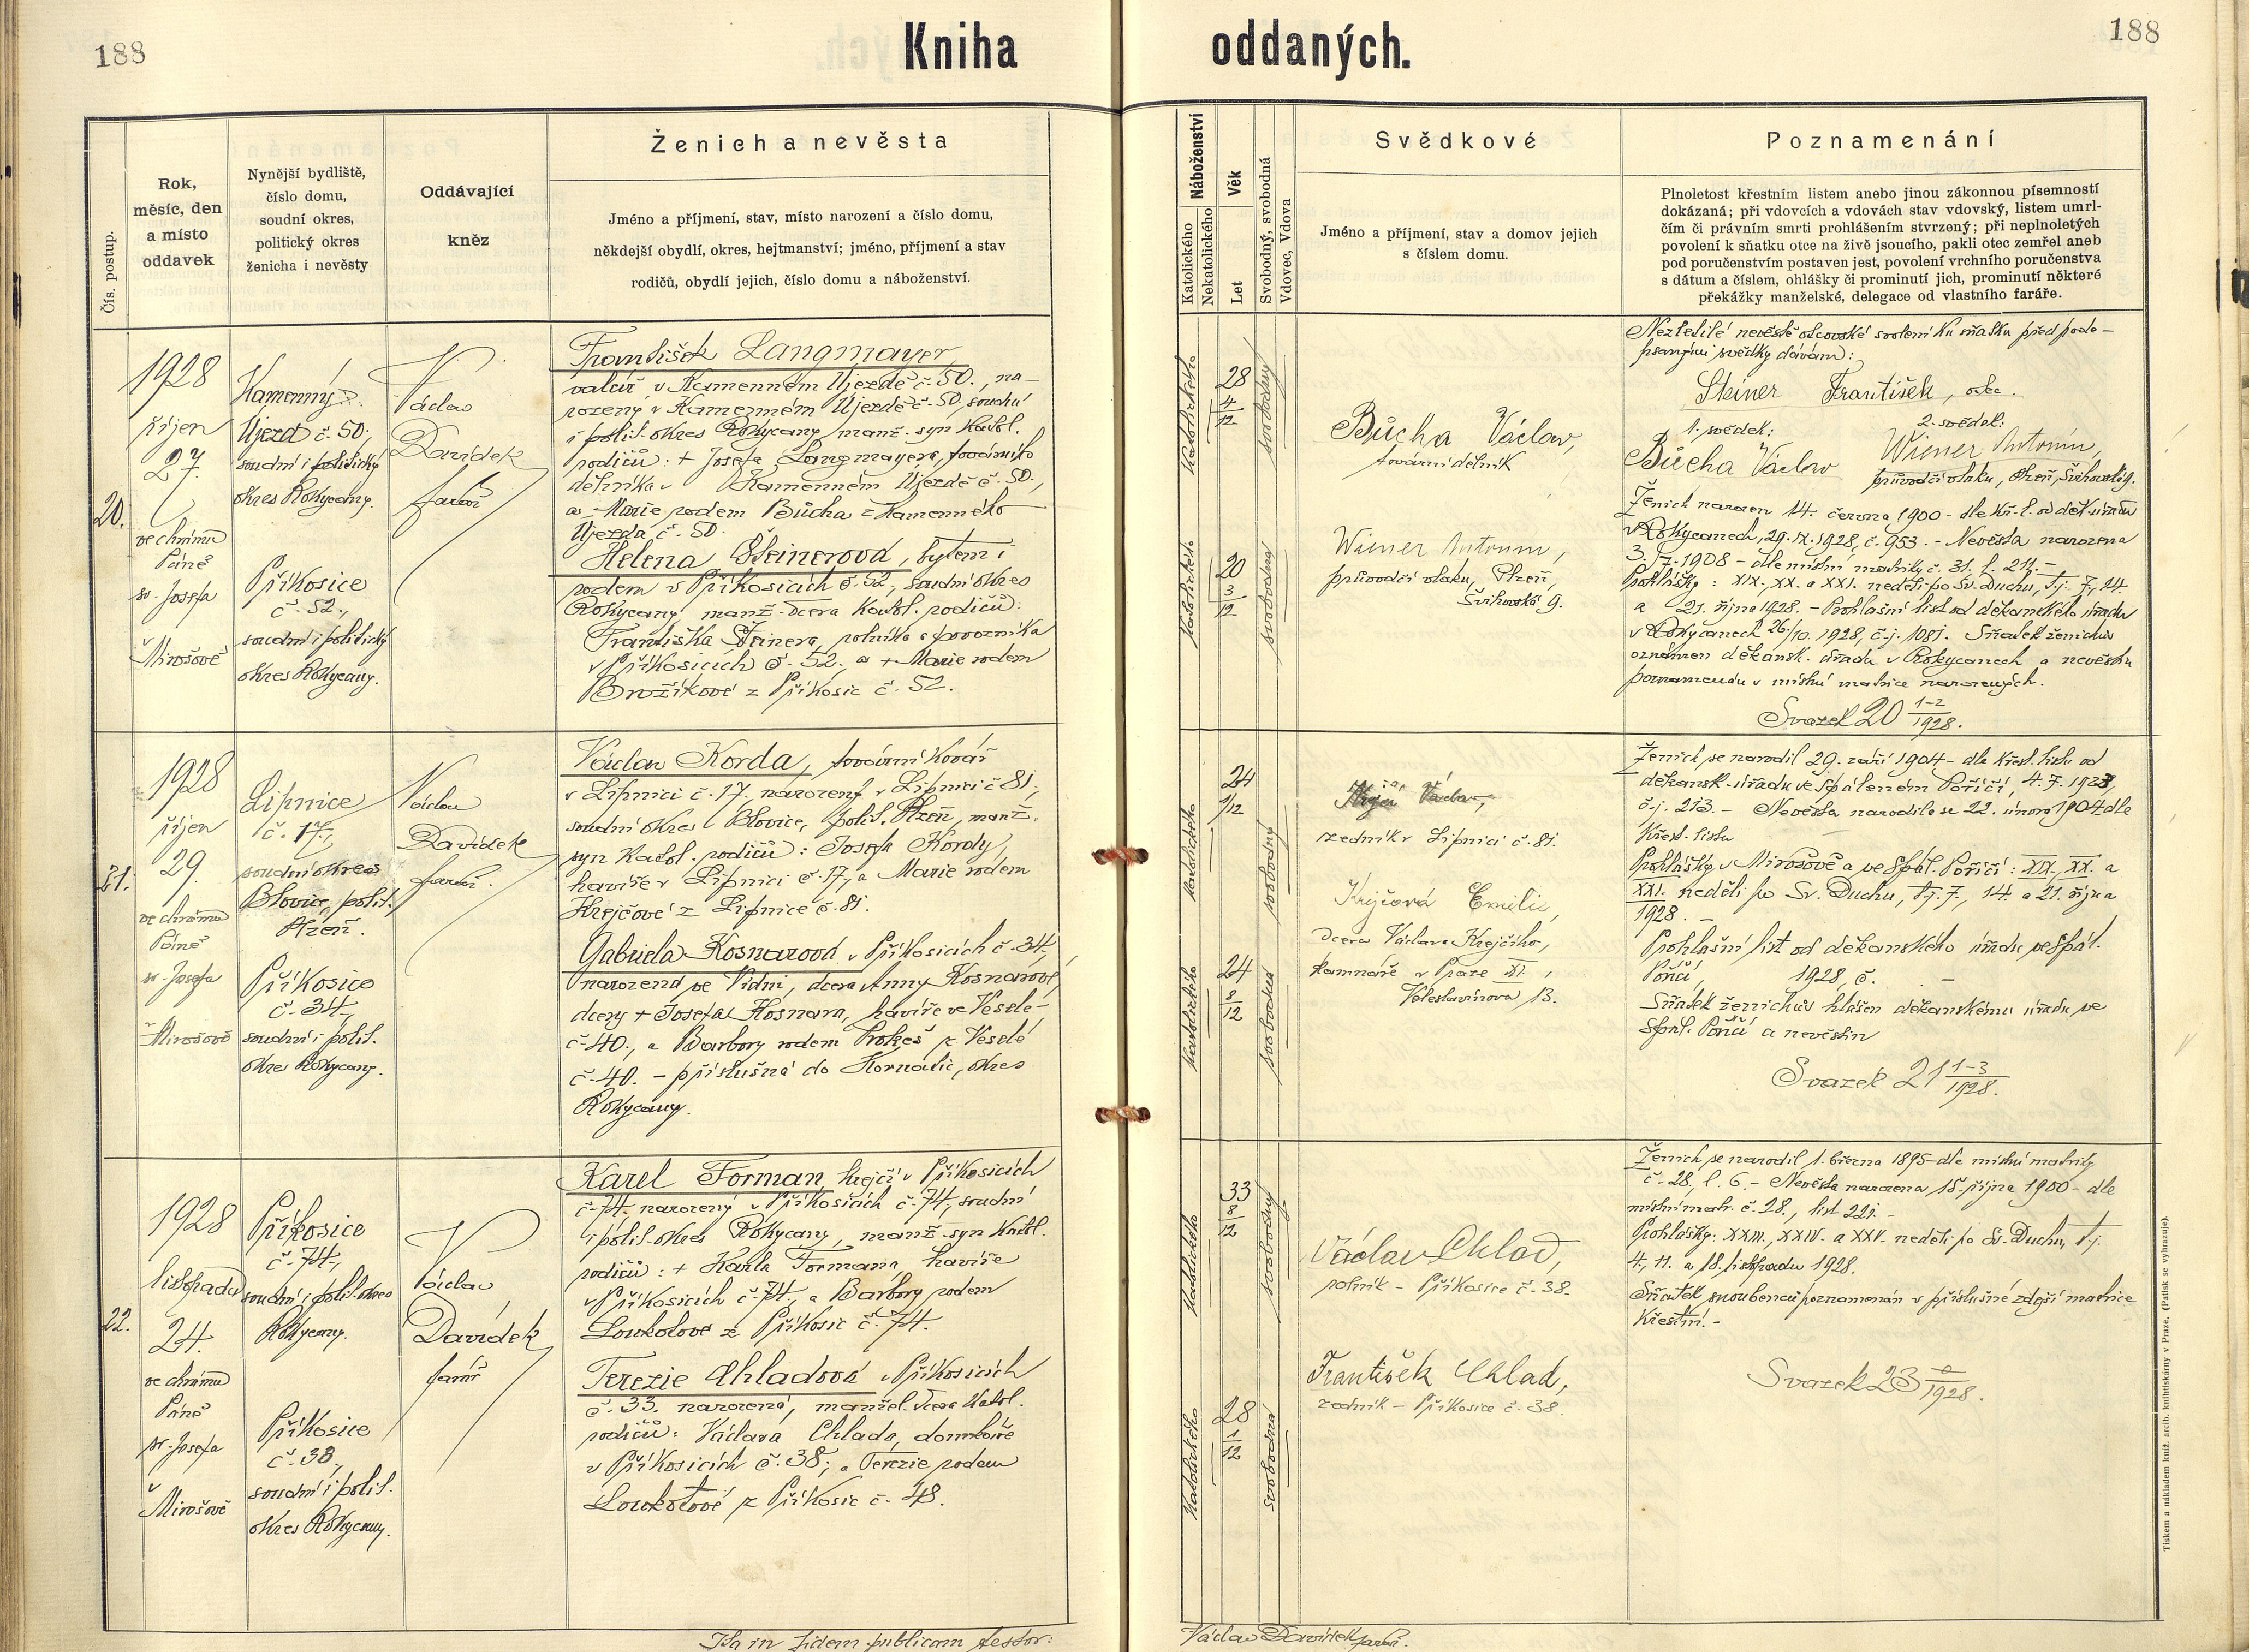 188
Kniha oddaných.
188
Čís. postup.
Rok,
měsíc, den
a místo
oddavek
Nynější bydliště,
číslo domu,
soudní okres,
politický okres
ženicha i nevěsty
Oddávající
kněz
Ženich a nevěsta
Jméno a příjmení, stav, místo narození a číslo domu,
někdejší obydlí, okres, hejtmanství; jméno, příjmení a stav
rodičů, obydlí jejich, číslo domu a náboženství.
Náboženství
Katolického
Nekatolického
Věk
Let
Svobodný, svobodná
Vdovec, Vdova
Svědkové
Jméno a příjmení, stav a domov jejich
s číslem domu.
Poznamenání
Plnoletost křestním listem anebo jinou zákonnou písemností
dokázaná; při vdovcích a vdovách stav vdovský, listem umrl-
čím či právním smrti prohlášením stvrzený; při neplnoletých
povolení k sňatku otce na živě jsoucího, pakli otec zemřel aneb
pod poručenstvím postaven jest, povolení vrchního poručenstva
s dátum a číslem, ohlášky či prominutí jich, prominutí některé
překážky manželské, delegace od vlastního faráře.
20.
1928
říjen
27.
ve chrámu
Páně
sv. Josefa
v
Mirošově
Kamenný
Újezd č. 50,
soudní i politický
okres Rokycany.
Příkosice
č. 52.,
soudní i politický
okres Rokycany.
Václav
Davídek
farář
František Langmayer,
valcíř v Kamenném Újezdě č. 50., na-
rozený v Kamenném Újezdě č. 50, soudní
i polit. okres Rokycany, manž. syn katol.
rodičů: + Josefa Langmayera, továrního
dělníka v Kamenném Újezdě č. 50.,
a Marie rodem Bůcha z Kamenného
Újezda č. 50.
Helena Steinerová, bytem i
rodem v Příkosicích č. 52., soudní okres
Rokycany, manž. dcera katol. rodičů:
Františka Steinera, rolníka a povozníka
v Příkosicích č. 52., a + Marie rodem
Brožíkové z Příkosic č. 52.
katolického
28
4
12
svobodný
katolického
20
3
12
svobodná
Bůcha Václav,
tovární dělník
Wiener Antonín,
průvodčí vlaku, Plzeň,
Švihovská 9.
Nezletilé nevěstě otcovské svolení ku sňatku před pode-
psanými svědky dávám:
Steiner František, otec.
1. svědek: 2. svědek:
Bůcha Václav Wiener Antonín,
průvodčí vlaku, Plzeň, Švihovská 9.
Ženich narozen 14. června 1900 - dle kř. l. od děk. úřadu
v Rokycanech, 29. IX. 1928, č. 953. - Nevěsta narozena
3. 7. 1908 - dle místní matriky č. 31. l. 211. -
Prohlášky: XIX., XX. a XXI. neděli po Sv. Duchu, t.j. 7., 14.
a 21. října 1928. - Prohlašní list od děkanského úřadu
v Rokycanech 26./10. 1928, č.j. 1081. Sňatek ženichův
oznámen děkansk. úřadu v Rokycanech a nevěstin
poznamenán v místní matrice narozených.
Svazek 20 1-2/1928.
21.
1928
říjen
29.
ve chrámu
Páně
sv. Josefa
v
Mirošově
Lipnice
č. 17.,
soudní okres
Blovice, polit.
Plzeň.
Příkosice
č. 34.,
soudní i polit.
okres Rokycany.
Václav
Davídek
farář.
Václav Korda, tovární kovář
v Lipnici č. 17., narozený v Lipnici č. 81,
soudní okres Blovice, polit. Plzeň, manž.
syn katol. rodičů: Josefa Kordy,
havíře v Lipnici č. 17, a Marie rodem
Krejčové z Lipnice č. 81.
Gabriela Kosnarová v Příkosicích č. 34,
narozená ve Vídni, dcera Anny Kosnarové,
dcery + Josefa Kosnara, havíře ve Veselé
č. 40., a Barbory rodem Prokeš z Veselé
č. 40. - příslušná do Kornatic, okres
Rokycany.
katolického
24
1/12
svobodný
katolického
24
8
12
svobodná
Václav,
zedník v Lipnici č. 81.
Krejčová Emilie,
dcera Václava Krejčího,
kamnáře v Praze XI.,
Veleslavínova 13.
Ženich se narodil 29. září 1904 - dle křest. listu od
děkansk. úřadu ve Spáleném Poříčí, 4. 7. 1928,
č.j. 213. - Nevěsta narodila se 22. února 1904 dle
křest. listu
Prohlášky v Mirošově a ve Spál. Poříčí: XIX., XX. a
XXI. neděli po Sv. Duchu, t.j. 7., 14. a 21. října
1928. -
Prohlašní list od děkanského úřadu ve Spál.
Poříčí, 1928, č. -
Sňatek ženichův hlášen děkanskému úřadu ve
Spál. Poříčí a nevěstin
Svazek 21 1-3/1928.
22.
1928
listopadu
24.
ve chrámu
Páně
sv. Josefa
v
Mirošově
Příkosice
č. 74.,
soudní i polit. okres
Rokycany.
Příkosice
č. 38,
soudní i polit.
okres Rokycany.
Václav
Davídek
farář
Karel Forman, krejčí v Příkosicích
č. 74. narozený v Příkosicích č. 74, soudní
i polit. okres Rokycany, manž. syn katol.
rodičů: + Karla Formana, havíře
v Příkosicích č. 74., a Barbory rodem
Loukotové z Příkosic č. 74.
Terezie Chladová v Příkosicích
č. 33. narozená, manžel. dcera katol.
rodičů: Václava Chlada, domkáře
v Příkosicích č. 38., a Terezie rodem
Loukotové z Příkosic č. 48.
katolického
33
8
12
svobodný
katolického
28
1
12
svobodná
Václav Chlad,
rolník - Příkosice č. 38.
František Chlad,
zedník - Příkosice č. 38.
Ženich se narodil 1. března 1895 - dle místní matriky
č. 28, l. 6. - Nevěsta narozena 15. října 1900 - dle
místní matr. č. 28., list 221. -
Prohlášky: XXIII., XXIV. a XXV. neděli po Sv. Duchu, t.j.
4., 11. a 18. listopadu 1928.
Sňatek snoubenců poznamenán v příslušné zdejší matrice
křestní. -
Svazek 23 0/1928.
Ita in fidem publicam testor:
Václav Davídek, farář.
Tiskem a nákladem kníž. arcib. knihtiskárny v Praze. (Patisk se vyhrazuje).